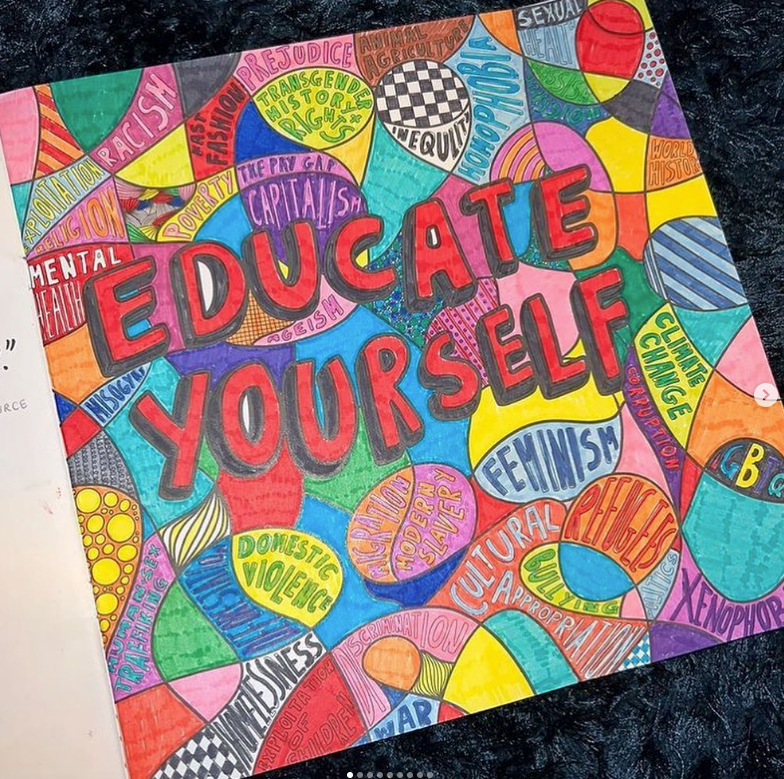 SEXUAL
HEALTH
PREJUDICE
ANIMAL
AGRICULTURE
RACISM
FAST
FASHION
TRANSGENDER
HISTORY +
RIGHTS
HOMOPHOBIA
WORLD
HISTO
PLOITATION
RELIGION
POVERTY
THE PAY GAP
CAPITALISM
MENTAL
HEALTH
EDUCATE
YOURSELF
AGEISM
CLIMATE
CHANGE
CORRUPTION
URCE
FEMINISM
MODERN
SLAVERY
DOMESTIC
VIOLENCE
CULTURAL
APPROPRIATION
REFUGEES
BULLYING
XENOPHOB
HUMAN + SEX
TRAFFIKING
HOMELESSNESS
EXPLOITATION
OF
CHILDREN
WAR